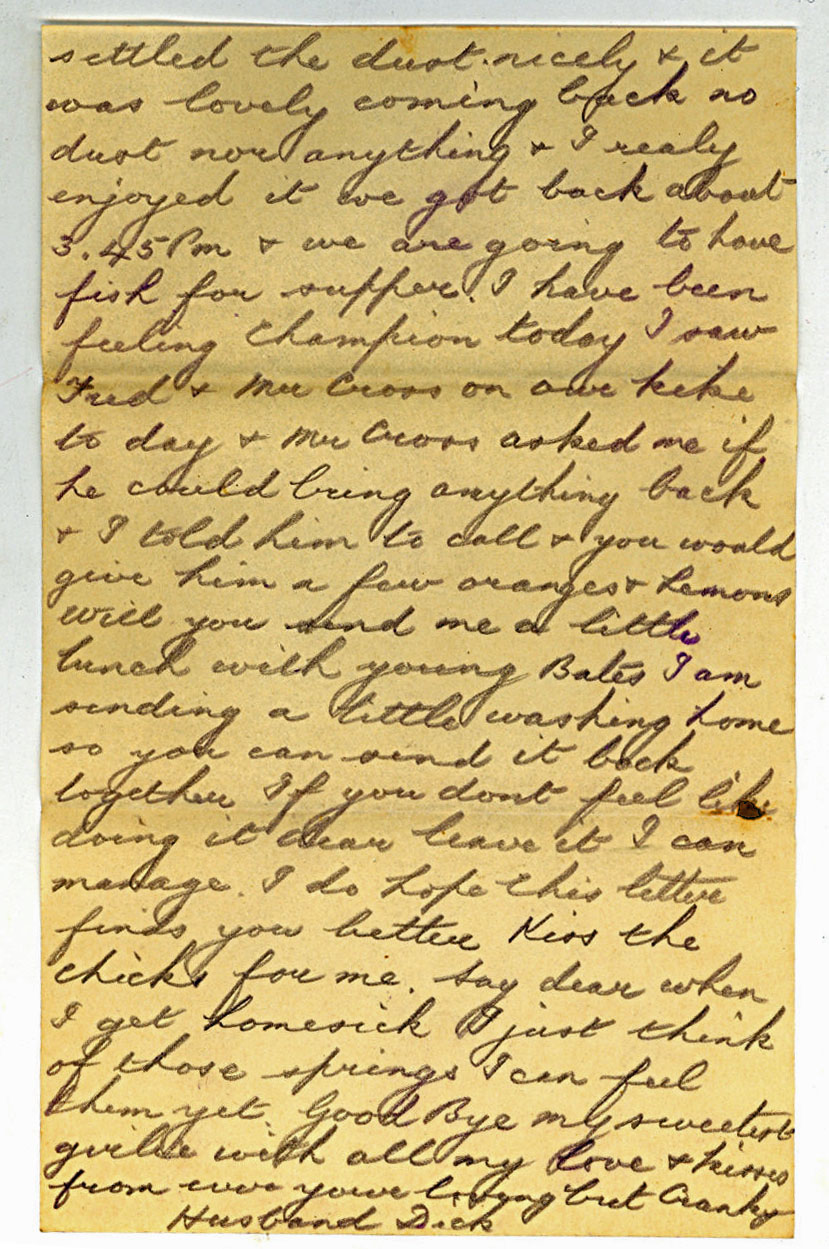 settled the dust nicely & it
was lovely coming back no
dust nor anything & I realy
enjoyed it we got back about
3.45 Pm & we are going to have
fish for supper. I have been
feeling Champion today I saw
Fred & Mr Cross on our hike
to day & Mr Cross asked me if
he could bring anything back
& I told him to call & you would
give him a few oranges & Lemons
Will you send me a little
lunch with young Bates I am
sending a little washing home
so you can send it back
together If you dont feel like
doing it dear leave it I can
manage. I do hope this letter
finds you better Kiss the
chicks for me. Say dear when
I get homesick I just think
of those springs I can feel
them yet. Good Bye my sweetest
girlie with all my Love & kisses
from your loving but Cranky
Husband Dick